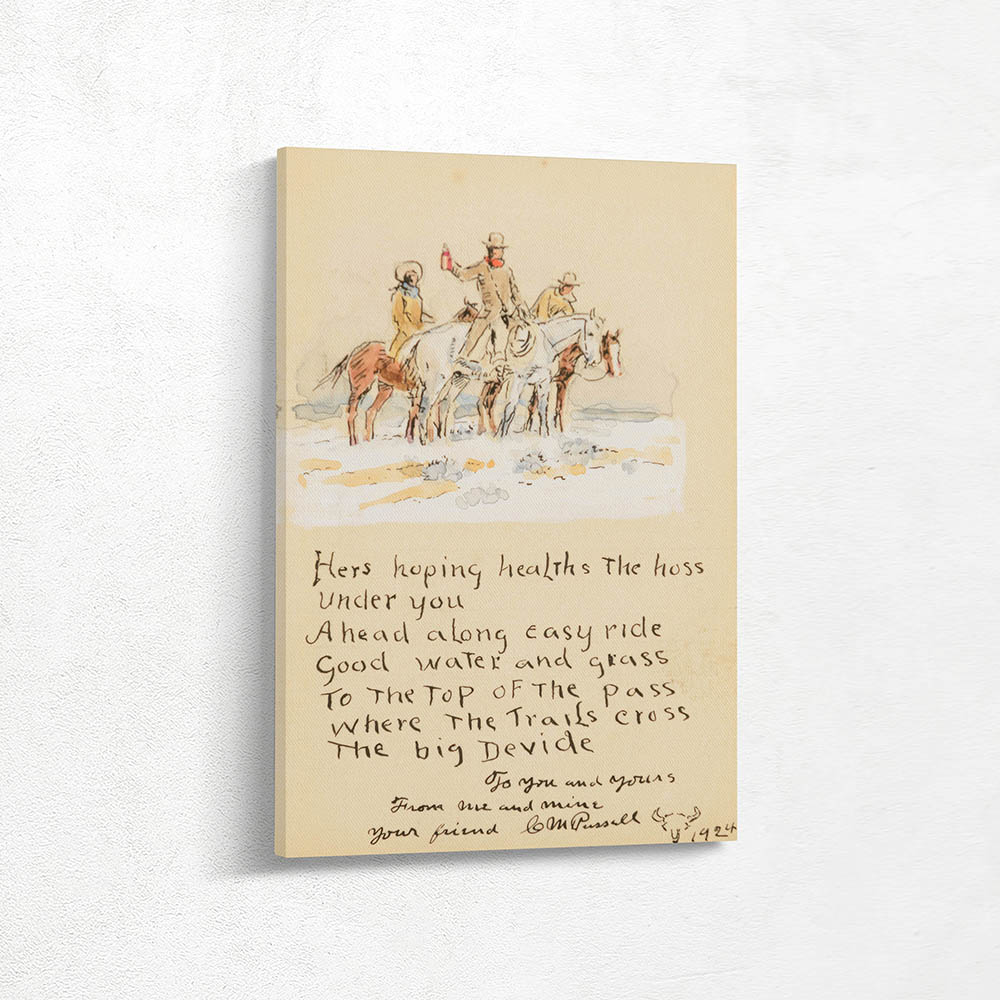 Hers hoping healths the hoss
under you
Ahead along easy ride
Good water and grass
To The Top of The pass
where The Trails cross
The big Devide
To you and yours
From me and mine
your friend CM Russell
1924